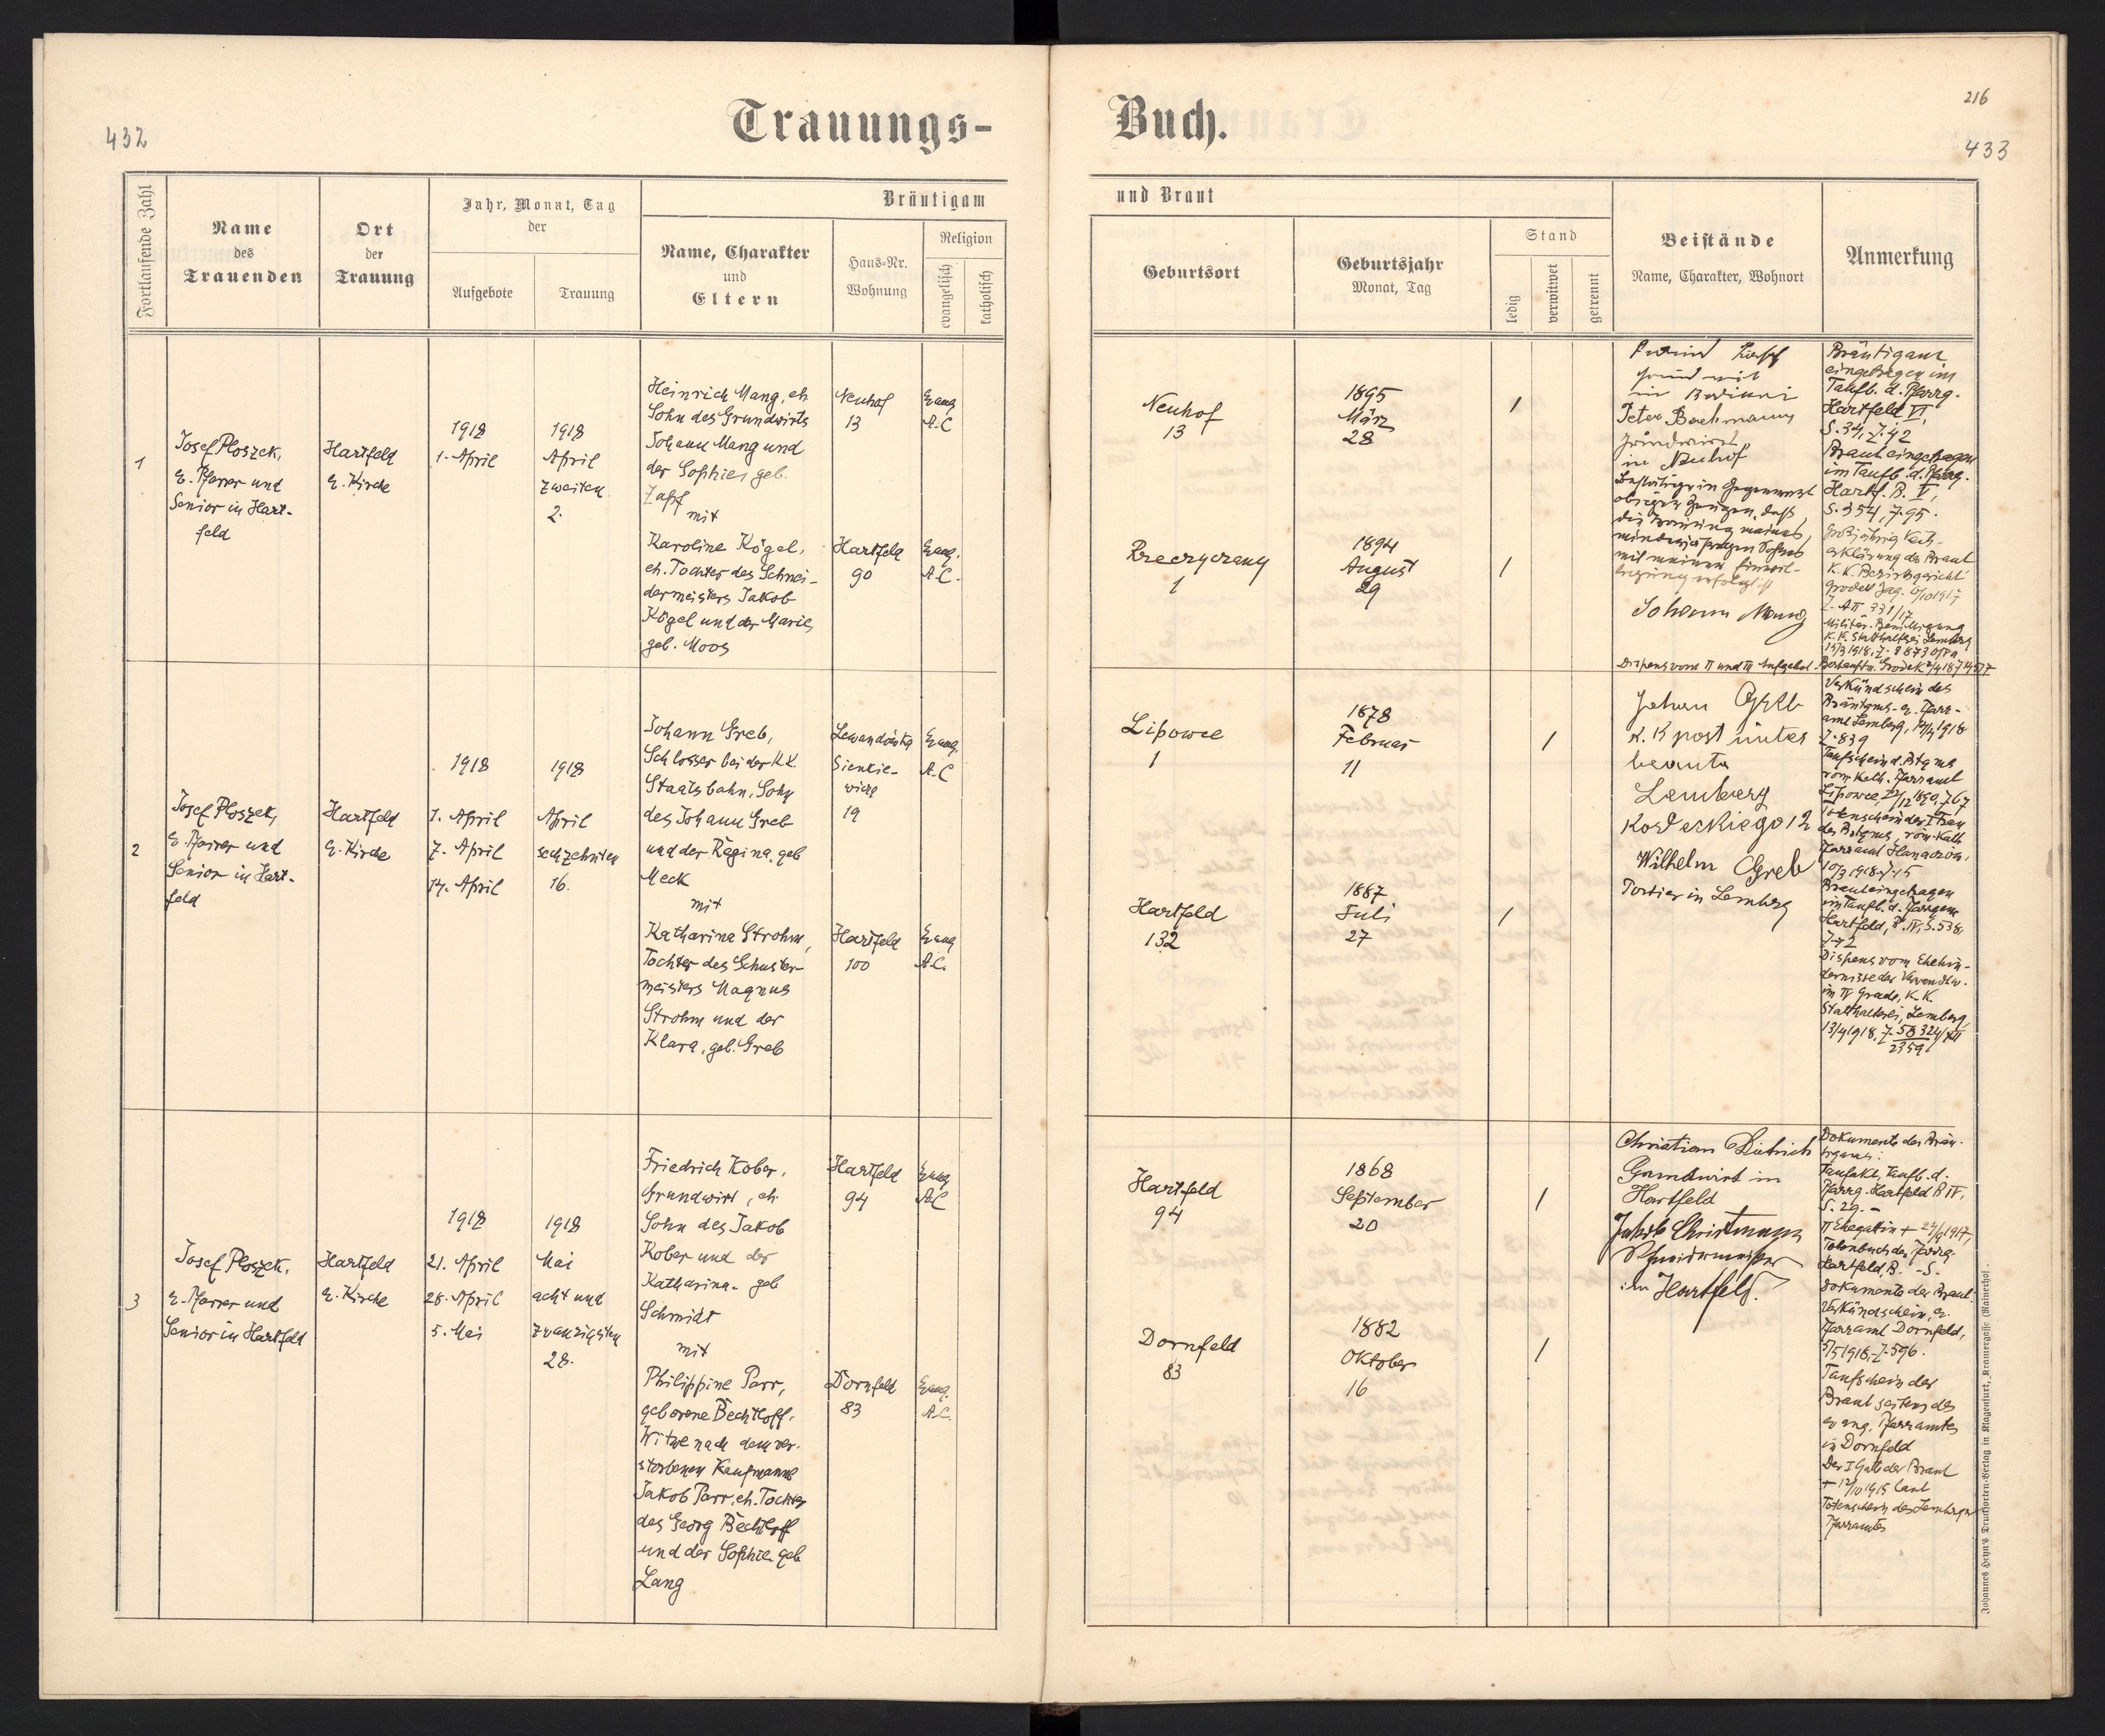 432
Trauungs-
Buch.
216
433
Fortlaufende Zahl
Name
des
Trauenden
Ort
der
Trauung
Jahr, Monat, Tag
der
Aufgebote
Trauung
Bräutigam
Name, Charakter
und
Eltern
Haus-Nr.
Wohnung
Religion
evangelisch
katholisch
und Braut
Geburtsort
Geburtsjahr
Monat, Tag
Stand
ledig
verwitwet
getrennt
Beistände
Name, Charakter, Wohnort
Anmerkung
1
Josef Ploszek,
e. Pfarrer und
Senior in Hart-
feld
Hartfeld
e. Kirche
1918
1. April
1918
April
zweiten
2.
Heinrich Mang, eh
Sohn des Grundwirts
Johann Mang und
der Sophie, geb.
Zapf
mit
Karoline Kögel,
eh. Tochter des Schnei-
dermeisters Jakob
Kögel und der Marie,
geb. Moos
Neuhof
13
Evang
A.C
Hartfeld
90
Evang.
A.C.
Neuhof
13
1895
März
28
1
1
1894
August
29
1
in
Peter Bachmann
Grundwirt
in Neuhof
Bestätige in Gegenwart
obiger Zeugen, daß
die Trauung meines
minderjährigen Sohnes
mit meiner Einwil-
ligung erfolgt ist
Johann Mang
Dispens vom II und III Aufgebot.
Bräutigam
eingetragen im
Taufb. d. Pfarrg.
Hartfeld VI,
S. 34, Z. 42
Braut eingetragen
im Taufb. d. Pfarrg.
Hartf. B. V,
S. 354, Z. 95.
erklärung der Braut
K. K. Bezirksgericht
Militär. Bewilligung
K. K. Statthalterei Lemberg
2
Josef Ploszek,
e. Pfarrer und
Senior in Hart-
feld
Hartfeld
e. Kirche
1918
1. April
7. April
14. April
1918
April
sechzehnten
16.
Johann Greb,
Schlosser bei der K.K.
Staatsbahn, Sohn
des Johann Greb
und der Regina, geb
Meck
mit
Katharina Strohm,
Tochter des Schuster-
meisters Magnus
Strohm und der
Klara, geb. Greb
Lewandówka
Sienkie-
wicza
19
Evang.
A.C
Hartfeld
100
Evang
A.C.
Lipowce
1
1878
Februar
11
1
Hartfeld
132
1887
Juli
27
1
Johan Greb
K. K post unter
beamte
Lemberg
12
Wilhelm Greb
Portier in Lemberg
Verkündschein des
Bräutgms. e. Pfarr-
amt Lemberg, 14/4 1918
Z. 839
Taufschein d. Btgms
vom Kath. Pfarramt
Totenschein der I Frau
des Btgms, röm. Kath
10/3 1918. Z. 15
Braut eingetragen
im Taufb. d. Pfarrgem
Hartfeld, B. IV, S. 538,
Z. 72
Dispens vom Ehehin-
dernisse der Verwandtsch.
im IV Grade, K. K.
Statthalterei, Lemberg
13/4 1918, Z.
3
Josef Ploszek,
e. Pfarrer und
Senior in Hartfeld
Hartfeld
e. Kirche
1918
21. April
28. April
5. Mai
1918
Mai
acht und
zwanzigsten
28.
Friedrich Kober,
Grundwirt, eh.
Sohn des Jakob
Kober und der
Katharina, geb
Schmidt
mit
Philippine Parr,
geborene Bechtloff,
Witwe nach dem ver-
storbenen Kaufmanne
Jakob Parr, eh. Tochter
des Georg Bechtloff
und der Sophie geb
Lang
Hartfeld
94
Evang
A.C
Dornfeld
83
Evang.
A.C.
Hartfeld
94
1868
September
20
1
Dornfeld
83
1882
Oktober
16
1
Christian Dietrich
Grundwirt in
Hartfeld
Jakob Christmann
Schneidermeister
in Hartfeld.
Dokumente des Bräu-
tigams:
Taufakt, Taufb. d.
Pfarrg. Hartfeld B IV,
S. 29. –
II Ehegattin + 24/9 1917,
Totenbuch der Pfarrg.
Hartfeld, B. – S.
Dokumente der Braut:
Verkündschein, e.
Pfarramt Dornfeld,
5/5 1918, Z. 596.
Taufschein der
Braut seitens des
evang. Pfarramtes
in Dornfeld
Der I Gatte der Braut
+ 12/10 1915 laut
Totenschein des Lemberger
Pfarramtes
Johannes Heyn's Drucksorten-Verlag in Klagenfurt, Kramergasse (Rainerhof).